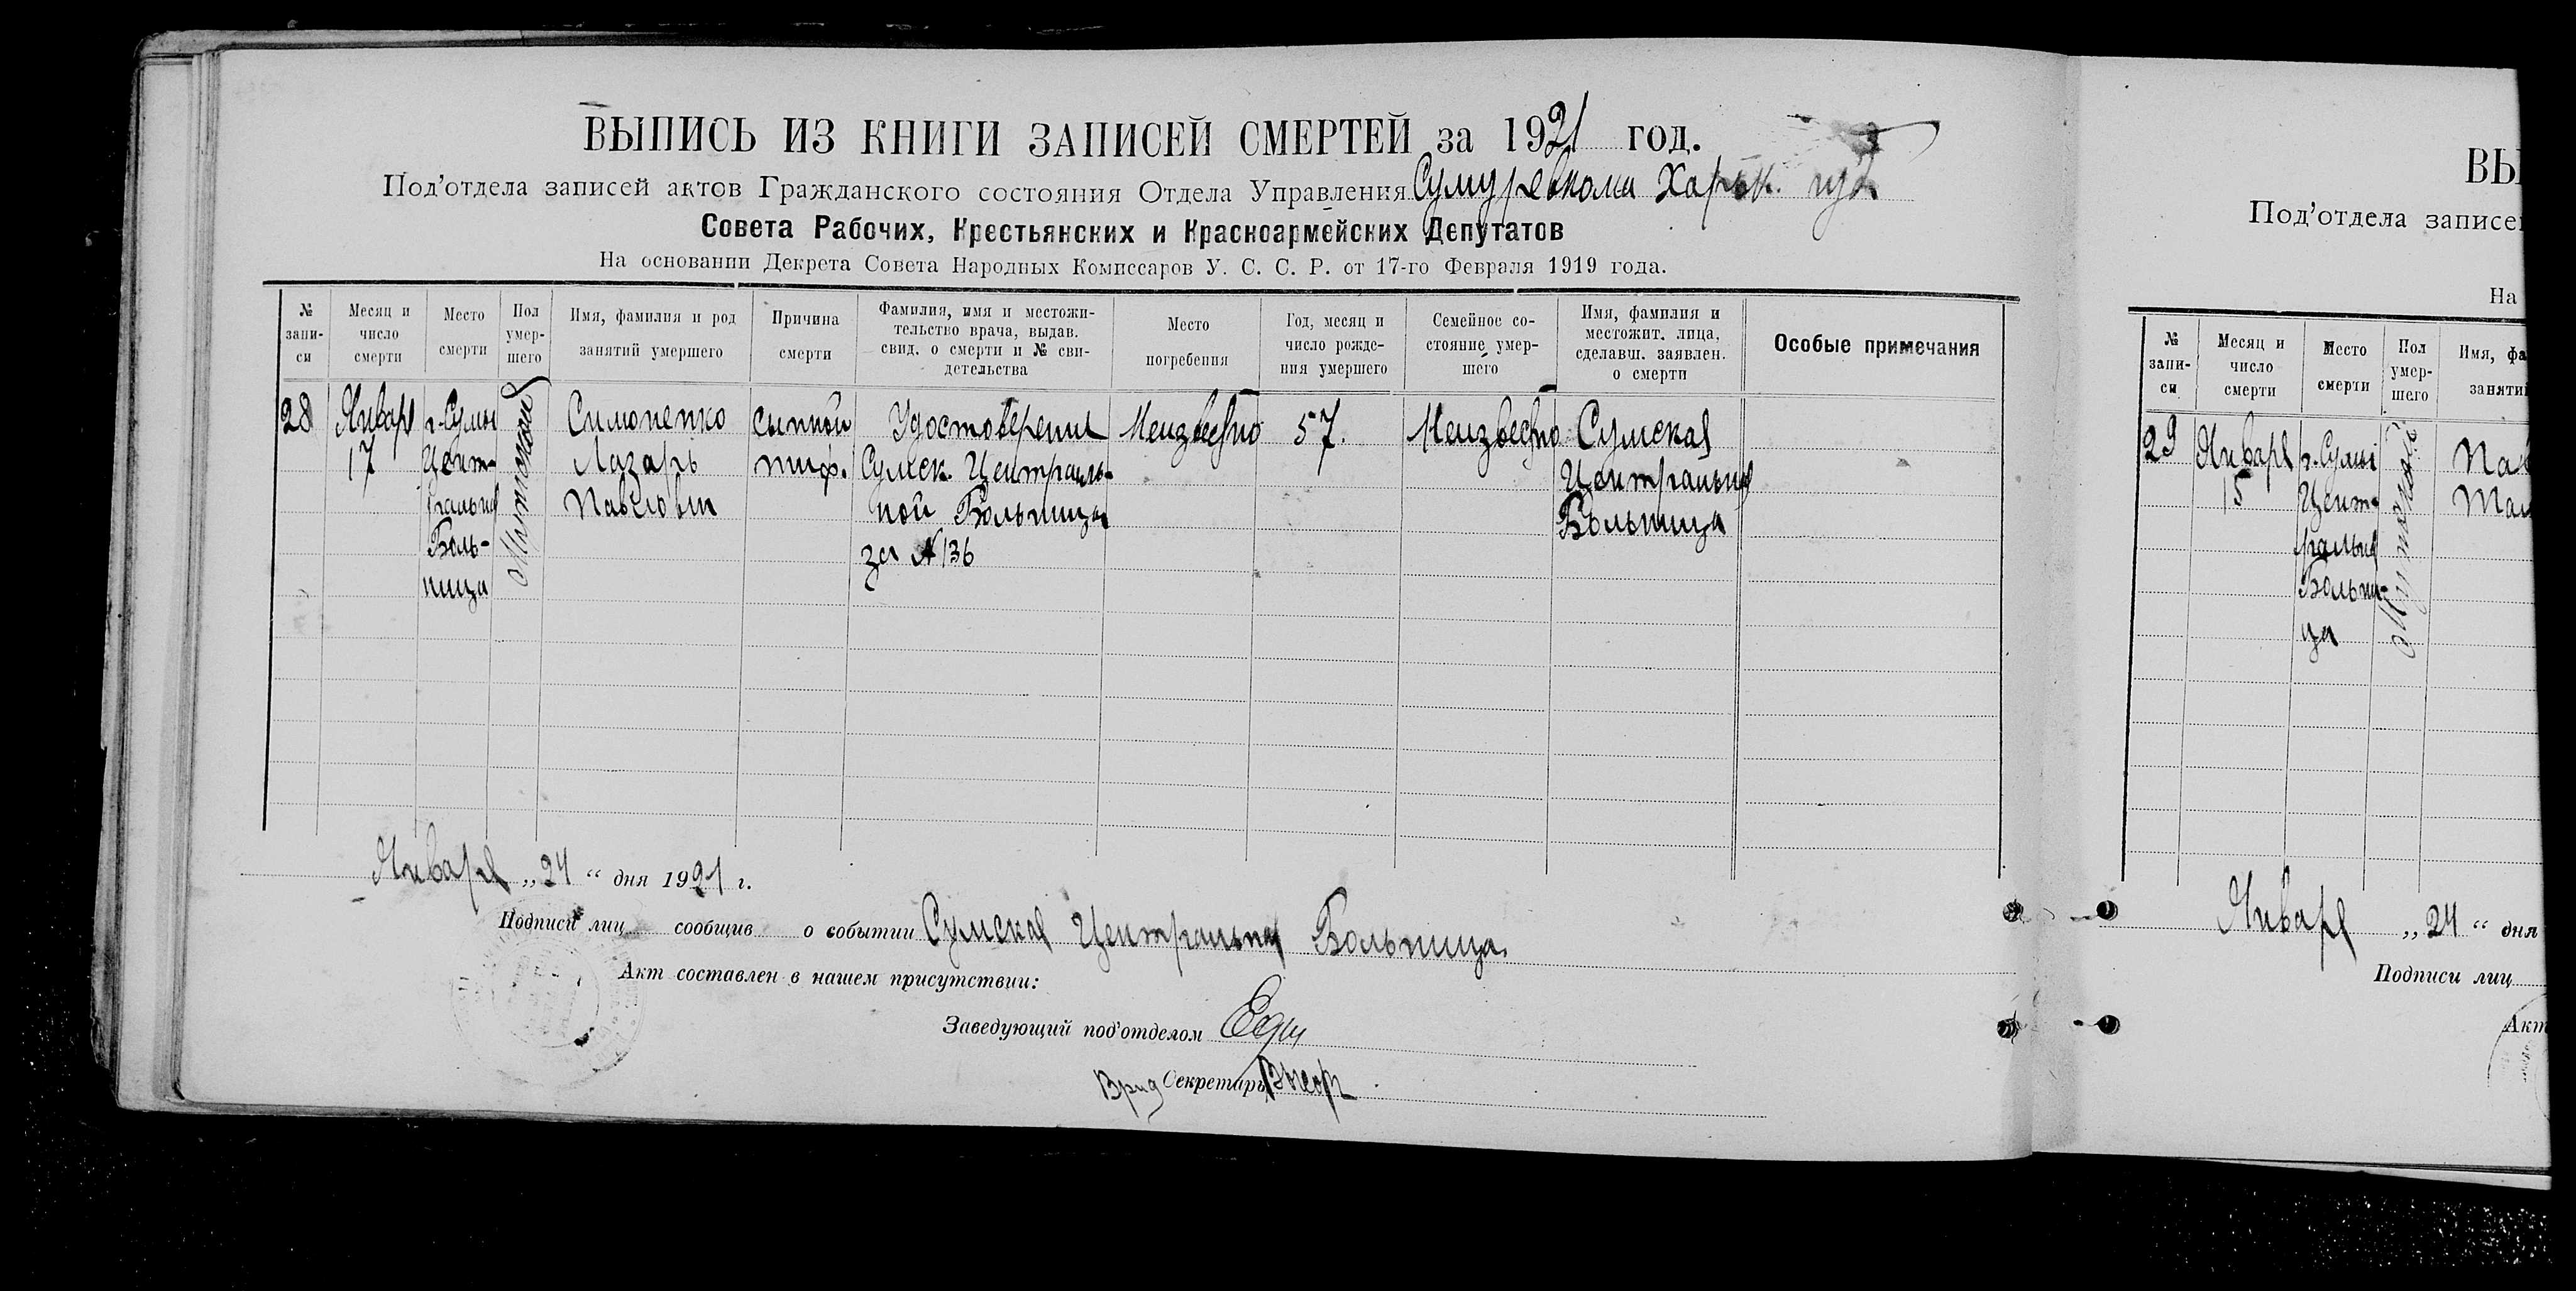 ВЫПИСЬ ИЗ КНИГИ ЗАПИСЕЙ СМЕРТЕЙ за 1921 год.
Под'отдела записей актов Гражданского состояния Отдела Управления Сумуревкома Харьк. губ
Совета Рабочих, Крестьянских и Красноармейских Депутатов
На основании Декрета Совета Народных Комиссаров У. С. С. Р. от 17-го Февраля 1919 года.
№ записи
Месяц и число смерти
Место смерти
Пол умершего
Имя, фамилия и род занятий умершего
Причина смерти
Фамилия, имя и местожительство врача, выдав. свид. о смерти и № свидетельства
Место погребения
Год, месяц и число рождения умершего
Семейное состояние умершего
Имя, фамилия и местожит. лица, сделавш. заявлен. о смерти
Особые примечания
28
Январ
17
г. Сумы
Цент-
ральна
Боль-
ница
Мужской
Симоненко
Лазарь
Павлович
сыпной
тиф.
Удостоверения
Сумск. Централь-
ной Больницы
за № 136
Неизвестно
57.
Неизвестно
Сумская
Центральная
Больница
Января „24“ дня 1921 г.
Подписи лиц сообщив о событии Сумская Центральная Больница.
Акт составлен в нашем присутствии:
Заведующий под'отделом
Врид Секретарь
ВЫ
Под'отдела записей
На
№ записи
Месяц и число смерти
Место смерти
Пол умершего
Имя, фа
заняти
29
Января
15
г. Сумы
Цент-
ральна
Больни-
ца
Мужской
Января „24“ дня
Подписи лиц
Акт